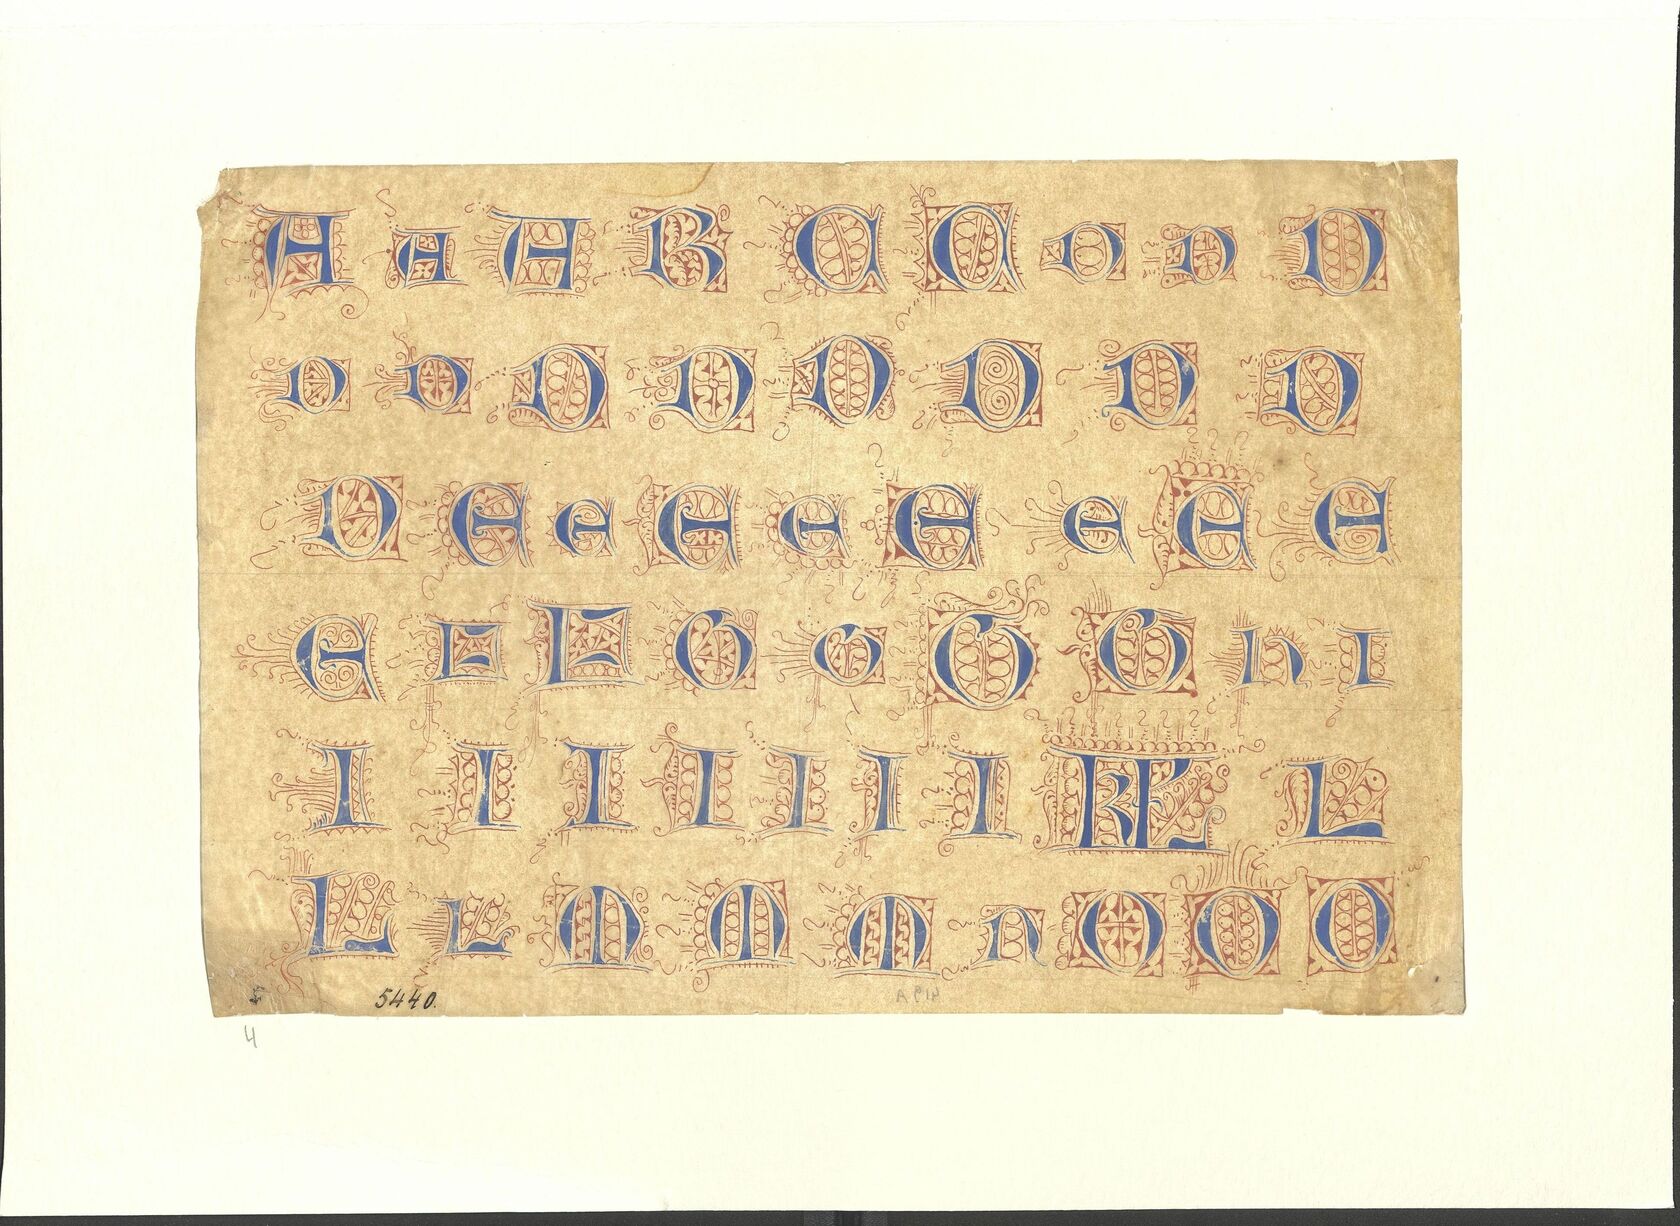 A A A B C C D D D
D D D D D D D D
D E E E E E E E E
E E E G G G G h I
I I I I I I I K L
L L M M M n O O O
5440.
4